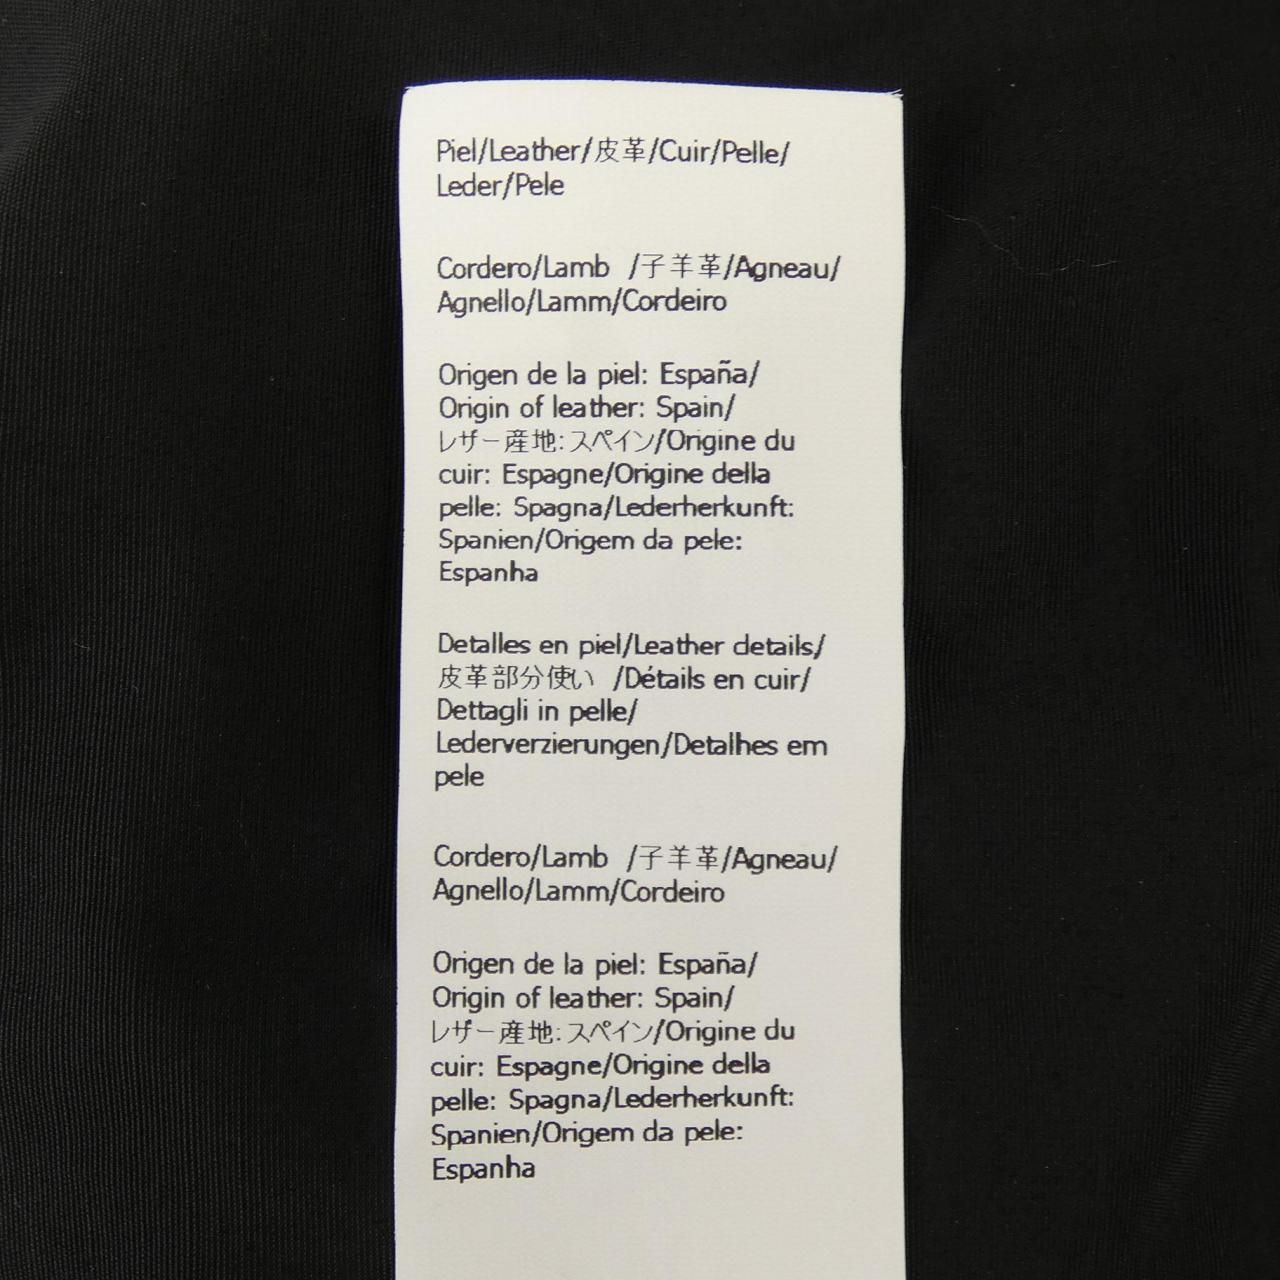 Piel/Leather/皮革/Cuir/Pelle/
Leder/Pele
Cordero/Lamb /子羊革/Agneau/
Agnello/Lamm/Cordeiro
Origen de la piel: España/
Origin of leather: Spain/
レザー産地: スペイン/Origine du
cuir: Espagne/Origine della
pelle: Spagna/Lederherkunft:
Spanien/Origem da pele:
Espanha
Detalles en piel/Leather details/
皮革部分使い /Détails en cuir/
Dettagli in pelle/
Lederverzierungen/Detalhes em
pele
Cordero/Lamb /子羊革/Agneau/
Agnello/Lamm/Cordeiro
Origen de la piel: España/
Origin of leather: Spain/
レザー産地: スペイン/Origine du
cuir: Espagne/Origine della
pelle: Spagna/Lederherkunft:
Spanien/Origem da pele:
Espanha